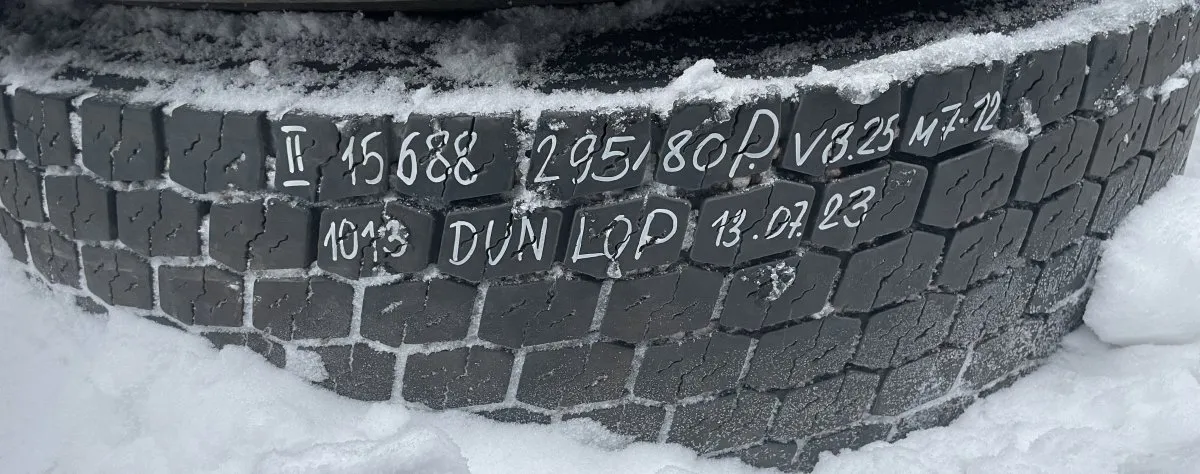 II 15688 295/80R V8.25 M7.12
1013 DUNLOP 13.07.23